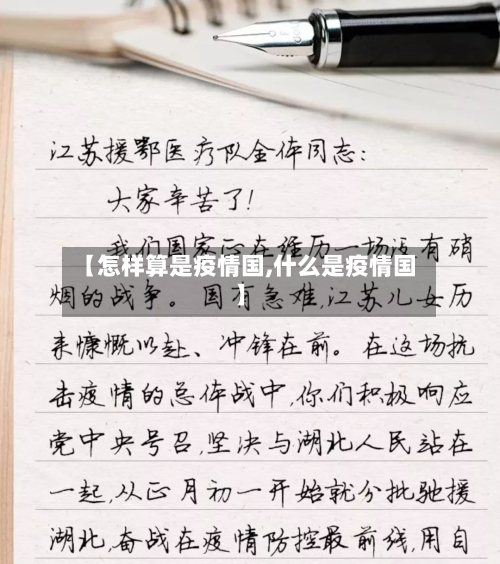 江苏援鄂医疗队全体同志：
大家辛苦了！
我们国家正在经历一场没有硝
【怎样算是疫情国,什么是疫情国
】
烟的战争。国有急难,江苏儿女历
来慷慨以赴、冲锋在前。在这场抗
击疫情的总体战中,你们积极响应
党中央号召,坚决与湖北人民站在
一起,从正月初一开始就分批驰援
湖北,奋战在疫情防控最前线,用自